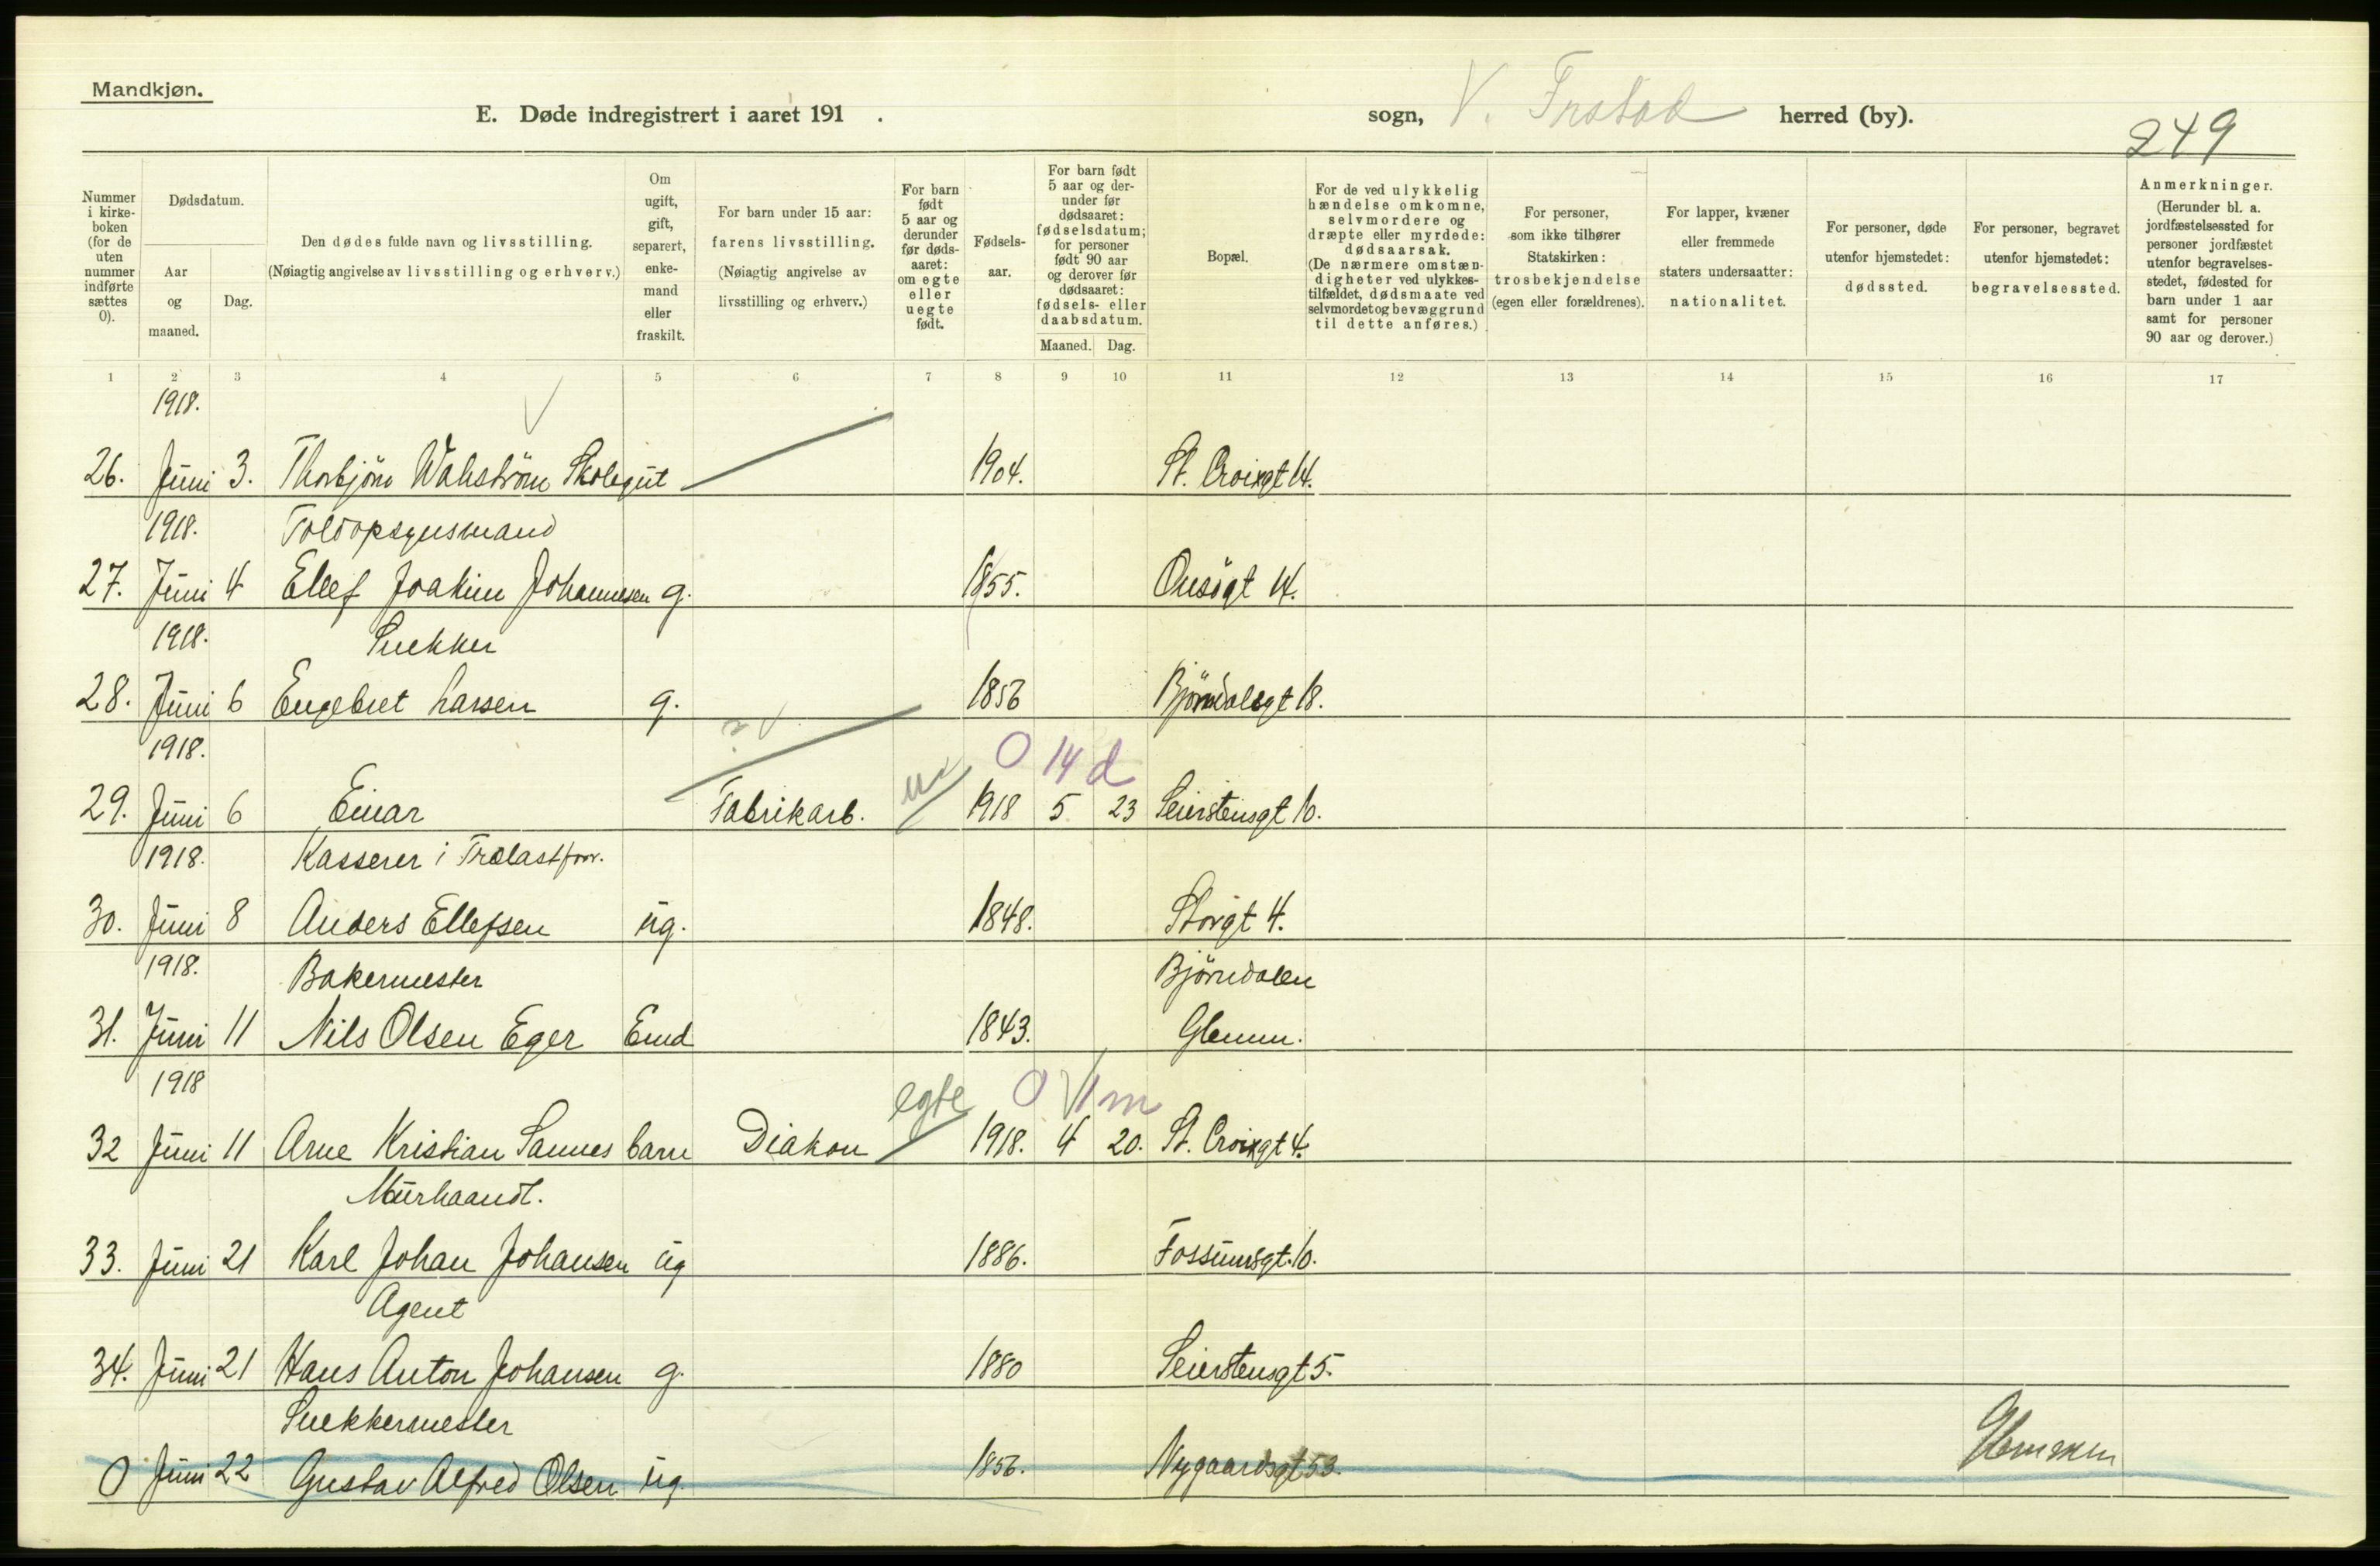 Mandkjøn.
E. Døde indregistrert i aaret 191 . sogn, V. Frstad herred (by).
249
Nummer i kirkeboken (for de uten nummer indførte sættes 0).
Dødsdatum.
Aar og maaned.
Dag.
Den dødes fulde navn og livsstilling. (Nøiagtig angivelse av livsstilling og erhverv.)
Om ugift, gift, separert, enkemand eller fraskilt.
For barn under 15 aar: farens livsstilling. (Nøiagtig angivelse av livsstilling og erhverv.)
For barn født 5 aar og derunder før dødsaaret: om egte eller uegte født.
Fødselsaar.
For barn født 5 aar og derunder før dødsaaret: fødselsdatum; for personer født 90 aar og derover før dødsaaret: fødsels- eller daabsdatum.
Maaned. Dag.
Bopæl.
For de ved ulykkelig hændelse omkomne, selvmordere og dræpte eller myrdede: dødsaarsak. (De nærmere omstændigheter ved ulykkestilfældet, dødsmaate ved selvmordet og bevæggrund til dette anføres.)
For personer, som ikke tilhører Statskirken: trosbekjendelse (egen eller forældrenes).
For lapper, kvæner eller fremmede staters undersaatter: nationalitet.
For personer, døde utenfor hjemstedet: dødssted.
For personer, begravet utenfor hjemstedet: begravelsessted.
Anmerkninger. (Herunder bl. a. jordfæstelsessted for personer jordfæstet utenfor begravelsesstedet, fødested for barn under 1 aar samt for personer 90 aar og derover.)
1 2 3 4 5 6 7 8 9 10 11 12 13 14 15 16 17
1918.
26. Juni 3. Thorbjörn Wahström Skolegut 1904. St. Croixgt 14.
1918. Toldopsynsmand
27. Juni 4 Ellef Joakim Johannesen g. 1855. Onsögt 14.
1918. Snekker
28. Juni 6 Engebret Larsen g. 1856 Björndalsgt 18.
1918. 0 14 d
29. Juni 6 Einar Fabrikarb. 1918 5 23 Seierstensgt 10.
1918. Kasserer i Trælastforr.
30. Juni 8 Anders Ellefsen ug. 1848. Storgt 4.
1918. Bakermester Björndalen
31. Juni 11 Nils Olsen Eger Emd 1843. Glemm.
1918 egte 0 1 m
32 Juni 11 Arne Kristian Sannes barn Diakon 1918. 4 20. St. Croixgt 4.
Murhaandl.
33. Juni 21 Karl Johan Johansen ug 1886. Fossumsgt. 10.
Agent
34. Juni 21 Hans Anton Johansen g. 1880 Seierstensgt 5.
Snekkermester
0 Juni 22 Gustav Alfred Olsen ug. 1856. Nygaardsgt 53. Glemmen